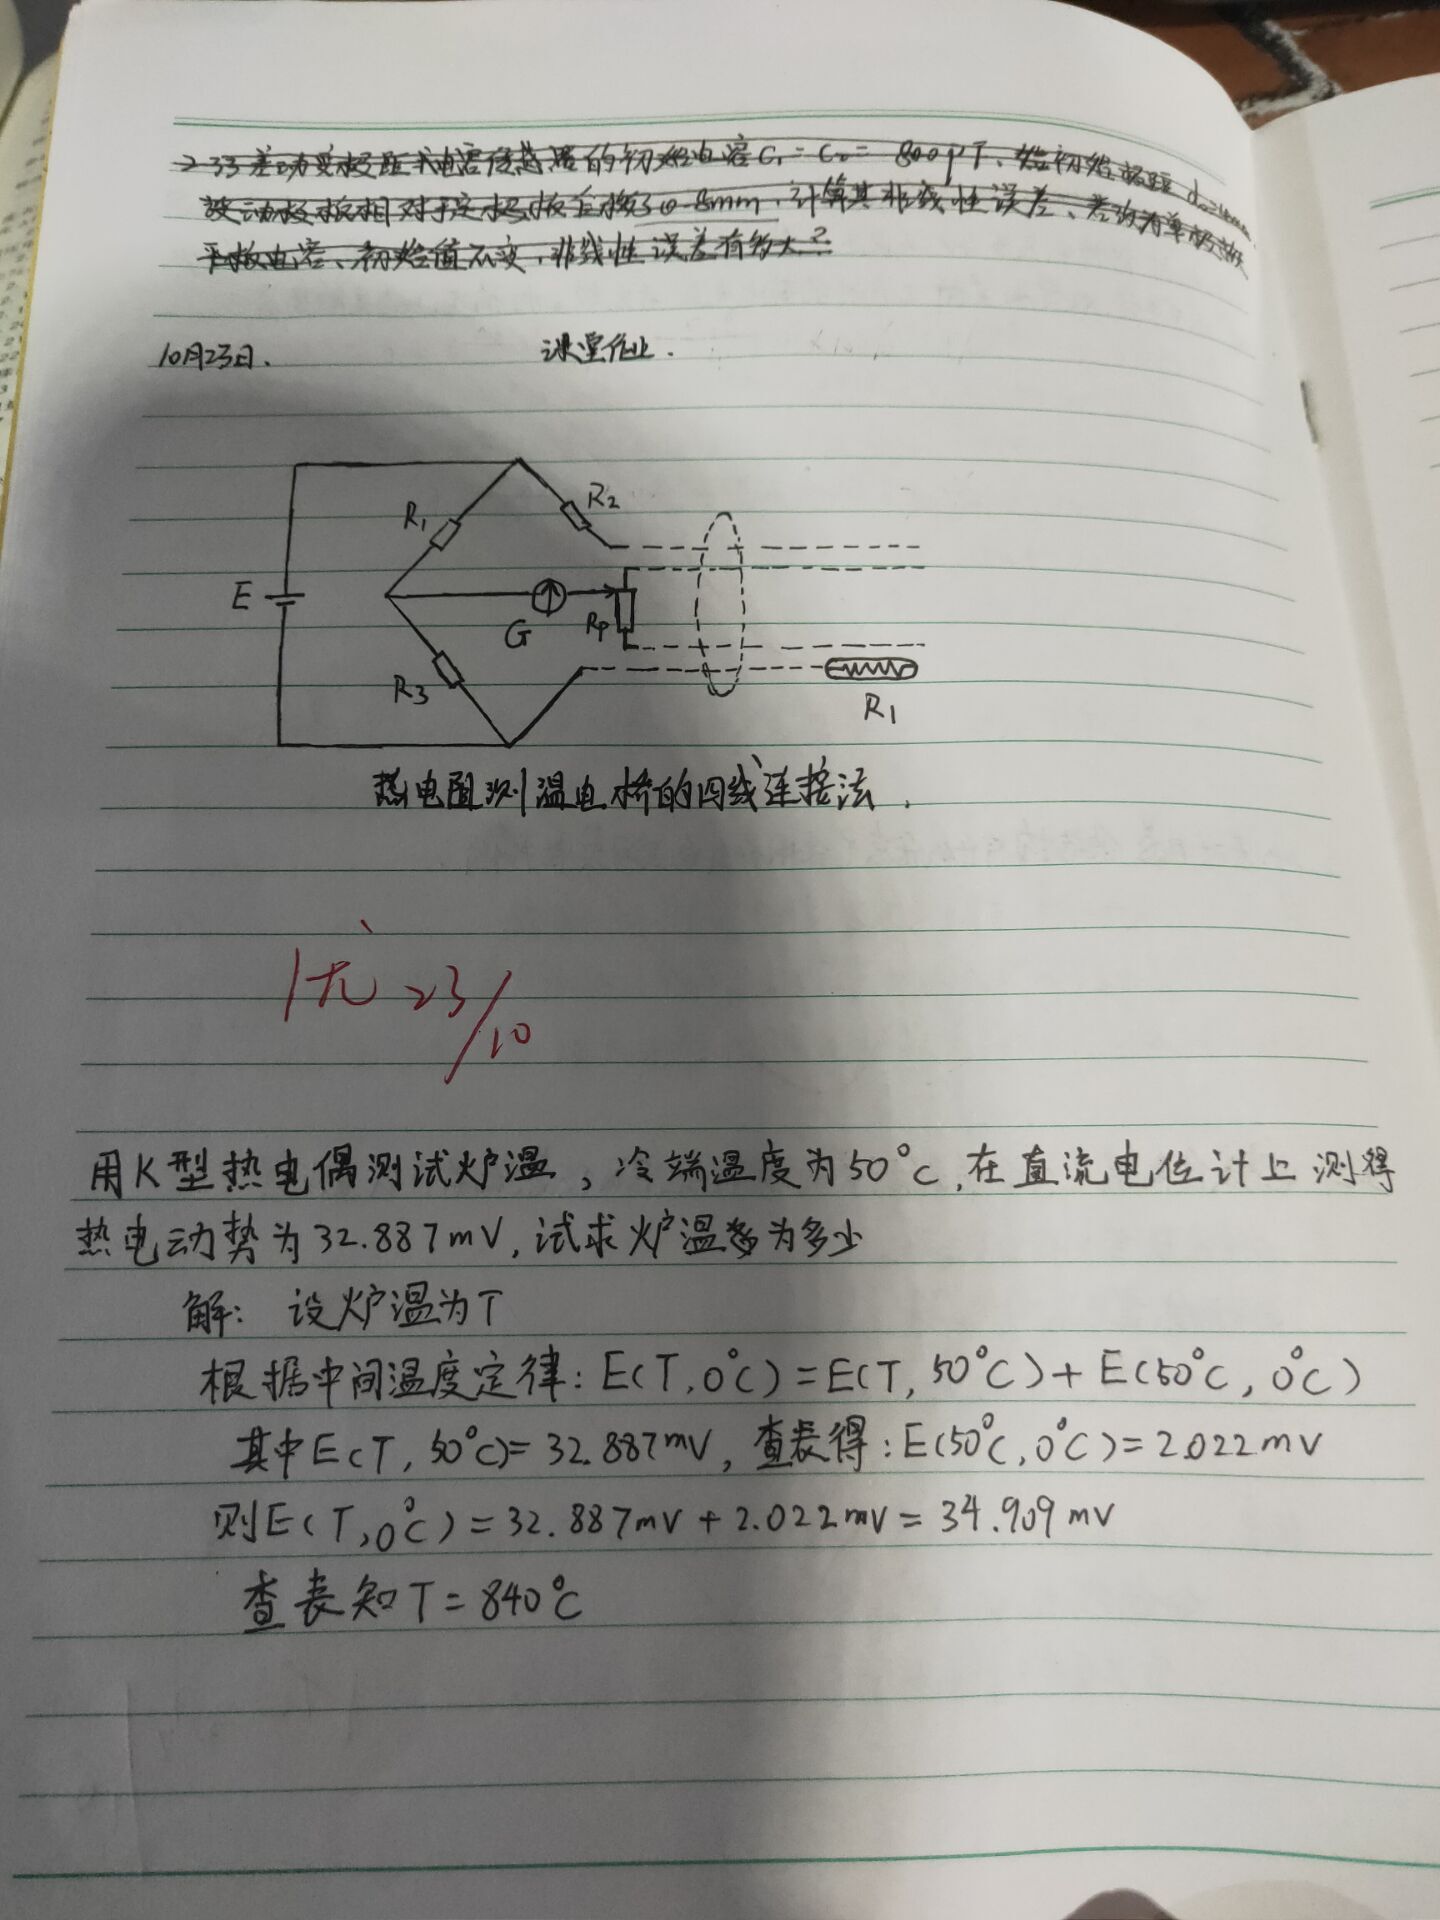 2-33 差动变极距式电容传感器的初始电容C₁=C₂=800pF、初始极距d₀=4mm
动极板相对于定极板位移了0.8mm,计算其非线性误差、若改为单极
平板电容、初始值不变,非线性误差有多大?
10月23日.
课堂作业.
R₁
R₂
E
G
Rp
R₃
R₁
热电阻测温电桥的四线连接法.
优 23/10
用K型热电偶测试炉温,冷端温度为50°C,在直流电位计上测得
热电动势为32.887mV,试求炉温为多少
解: 设炉温为T
根据中间温度定律:E(T,0°C)=E(T,50°C)+E(50°C,0°C)
其中E(T,50°C)=32.887mV,查表得:E(50°C,0°C)=2.022mV
则E(T,0°C)=32.887mV+2.022mV=34.909mV
查表知T=840°C